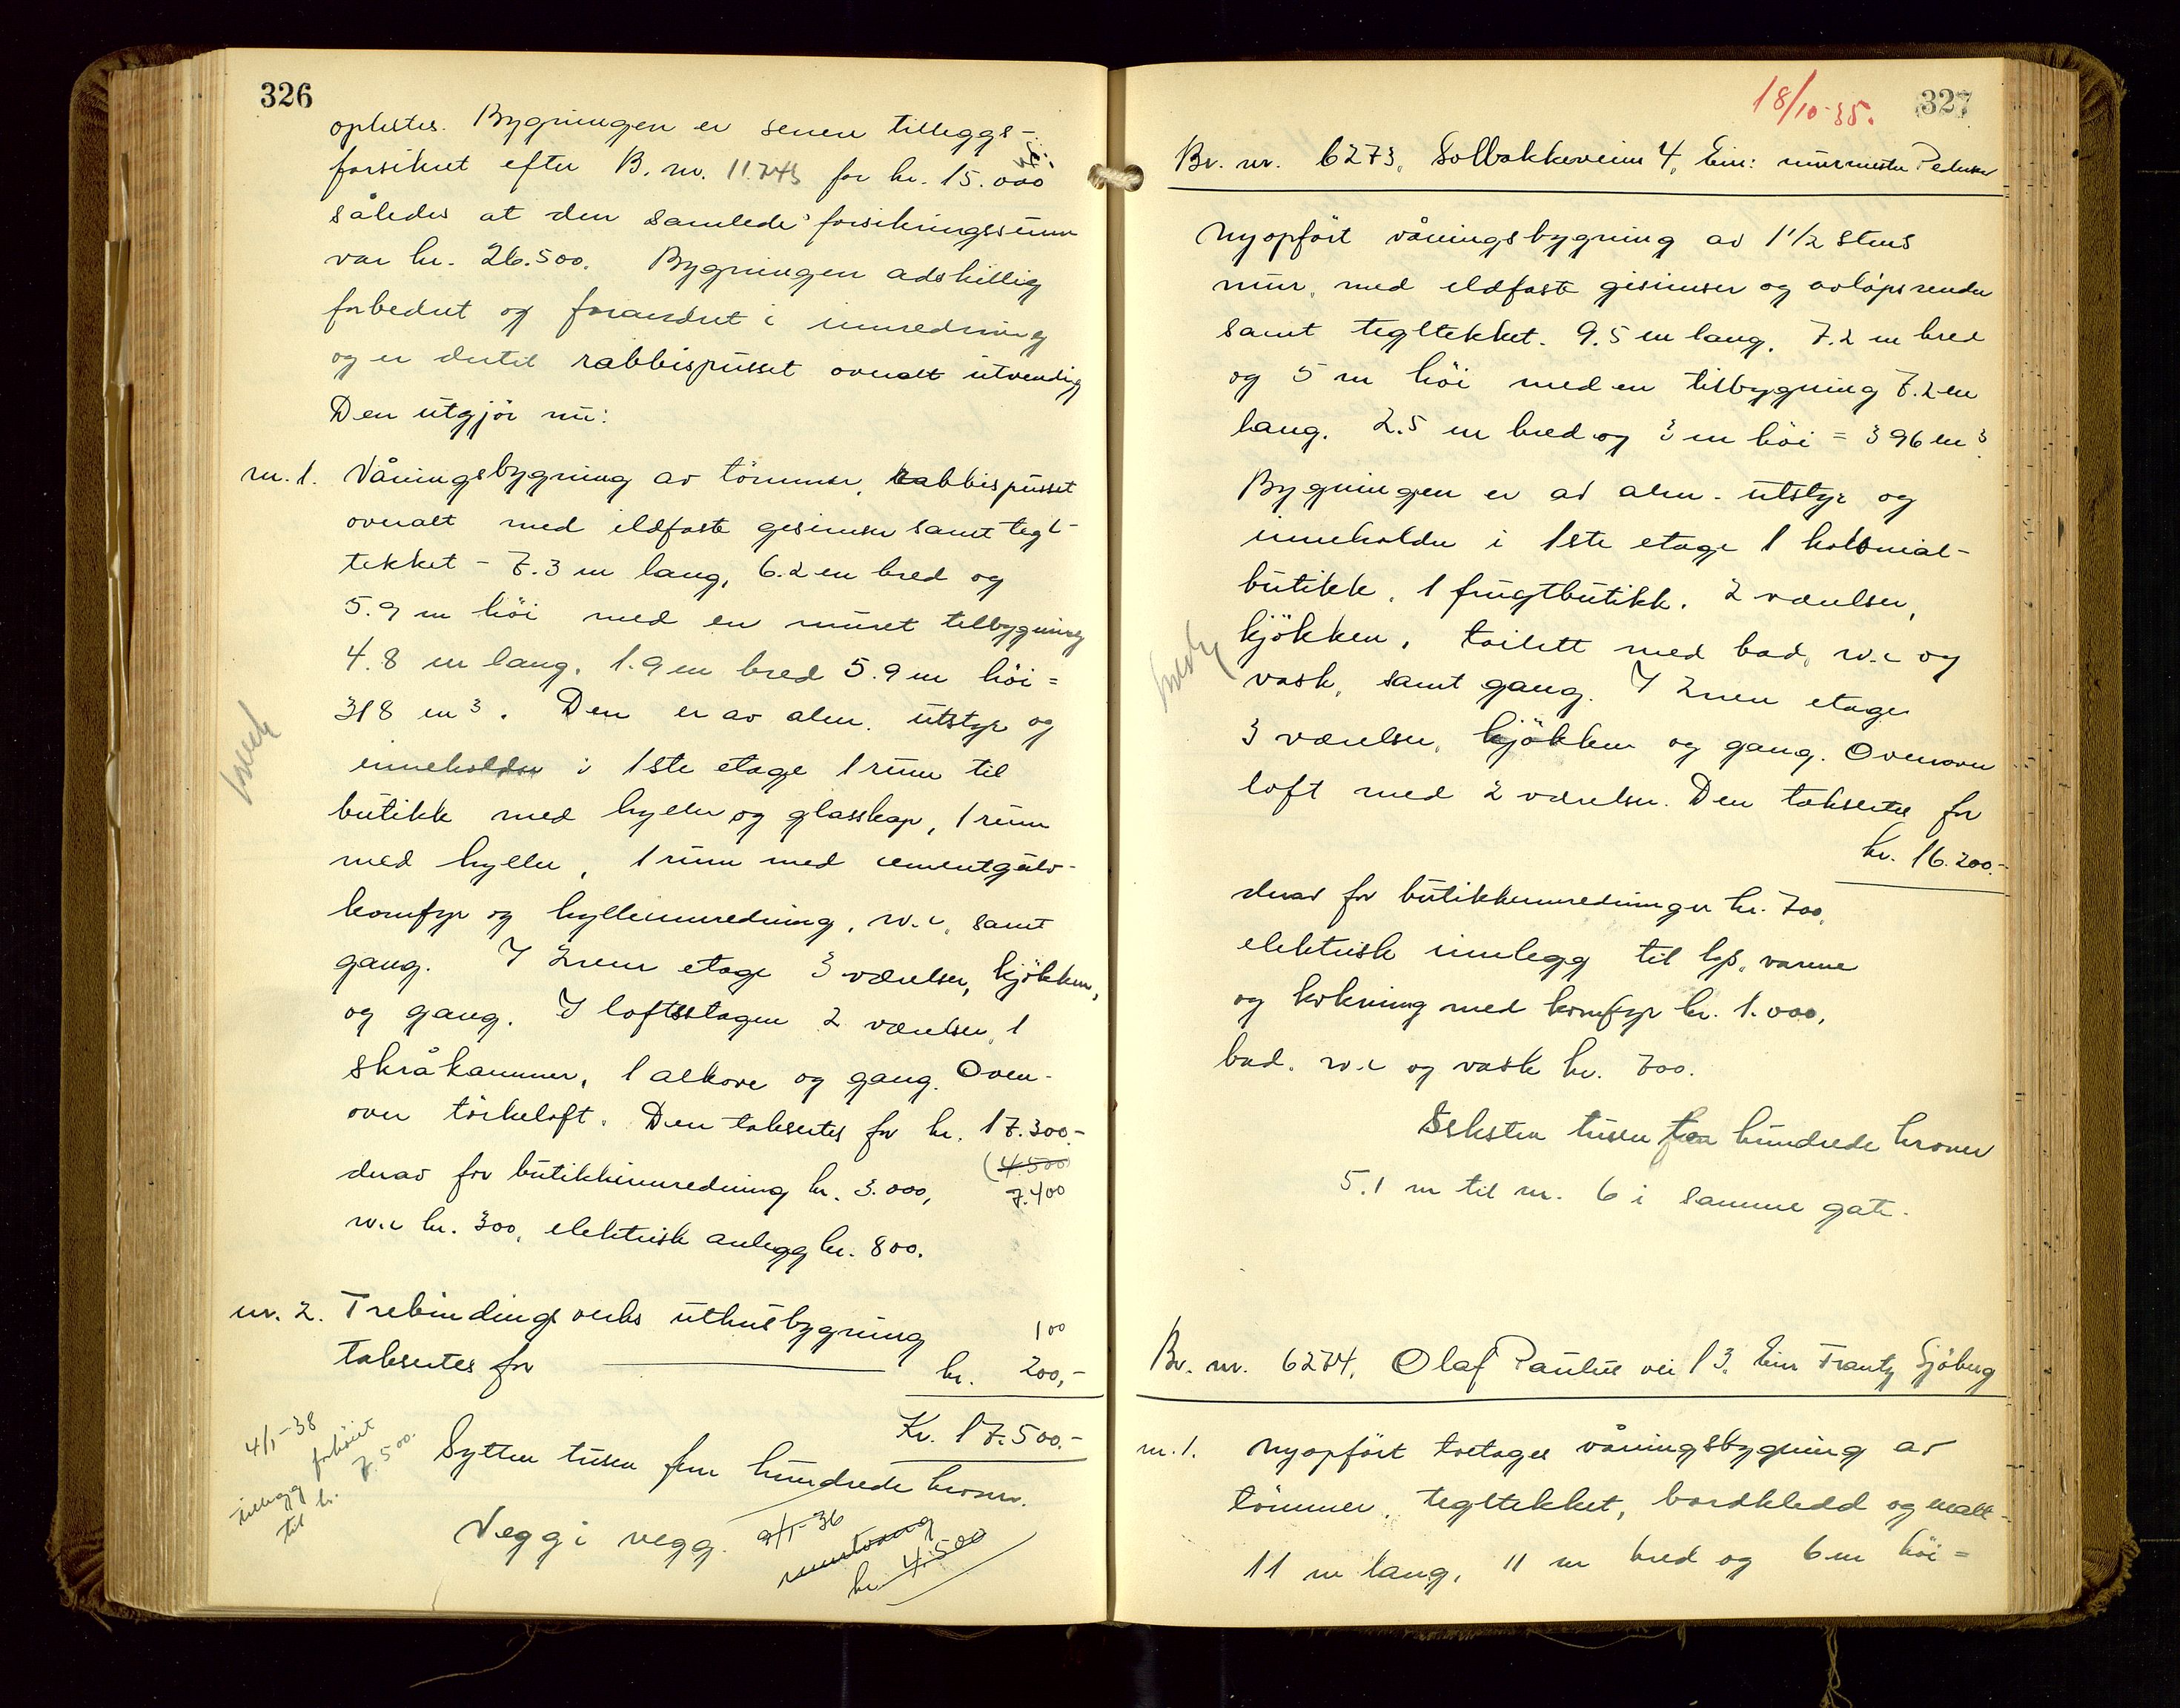 326
opløstes. Bygningen er senere tilleggs-
forsikret efter B. nr. 11.245 for kr. 15.000
således at den samlede forsikringssum
var kr. 26.500. Bygningen adskillig
forbedret og forandret i innredning
og er dertil rabbispusset overalt utvendig
Den utgjör nu:
nr. 1. Våningsbygning av tömmer, rabbispusset
overalt med ildfaste gesimser samt tegl-
tekket - 7.3 m lang, 6.2 m bred og
5.9 m höi med en muret tilbygning
4.8 m lang, 1.9 m bred 5.9 m höi =
318 m³. Den er av alm. utstyr og
inneholder i 1ste etage 1 rum til
butikk med hyller og glasskap, 1 rum
med hyller, 1 rum med cementgulv
komfyr og hylleinnredning, w.c. samt
gang. I 2nen etage 3 værelser, kjökken,
og gang. I loftsetagen 2 værelser, 1
skråkammer, 1 alkove og gang. Oven-
over törkeloft. Den takseres for kr. 17.300.-
(4.500)
derav for butikkinnredning kr. 3.000,
7.400
w.c kr. 300, elektrisk anlegg kr. 800.
nr. 2. Trebindingsverks uthusbygning
100
takseres for kr. 200,-
Kr. 17.500.-
4/1-38
tillegg forhöiet
til kr. 7.500.
Sytten tusen fem hundrede kroner.
Vegg i vegg. 9/1-36
kr. 4.500
18/10-35. 327
Br. nr. 6273. Solbakkeveien 4, Eier: murmester Pedersen
Nyopfört våningsbygning av 1 1/2 stens
mur, med ildfaste gesimser og avløpsrender
samt tegltekket. 9.5 m lang, 7.2 m bred
og 5 m höi med en tilbygning 7.2 m
lang, 2.5 m bred og 3 m höi = 396 m³.
Bygningen er av alm. utstyr og
inneholder i 1ste etage 1 kolonial-
butikk, 1 frugtbutikk, 2 værelser,
kjökken, toilett med bad, w.c og
vask, samt gang. I 2nen etage
3 værelser, kjökken og gang. Ovenover
loft med 2 værelser. Den takseres for
kr. 16.200.-
derav for butikkinnredninger kr. 700,
elektrisk innlegg til lys, varme
og kokning med komfyr kr. 1.000,
bad, w.c og vask kr. 700.
Seksten tusen to hundrede kroner
5.1 m til nr. 6 i samme gate.
Br. nr. 6274. Olaf Paulus vei 13, Eier Frantz Sjöberg
nr. 1. Nyopfört toetages våningsbygning av
tömmer, tegltekket, bordkledd og malt-
11 m lang, 11 m bred og 6 m höi =